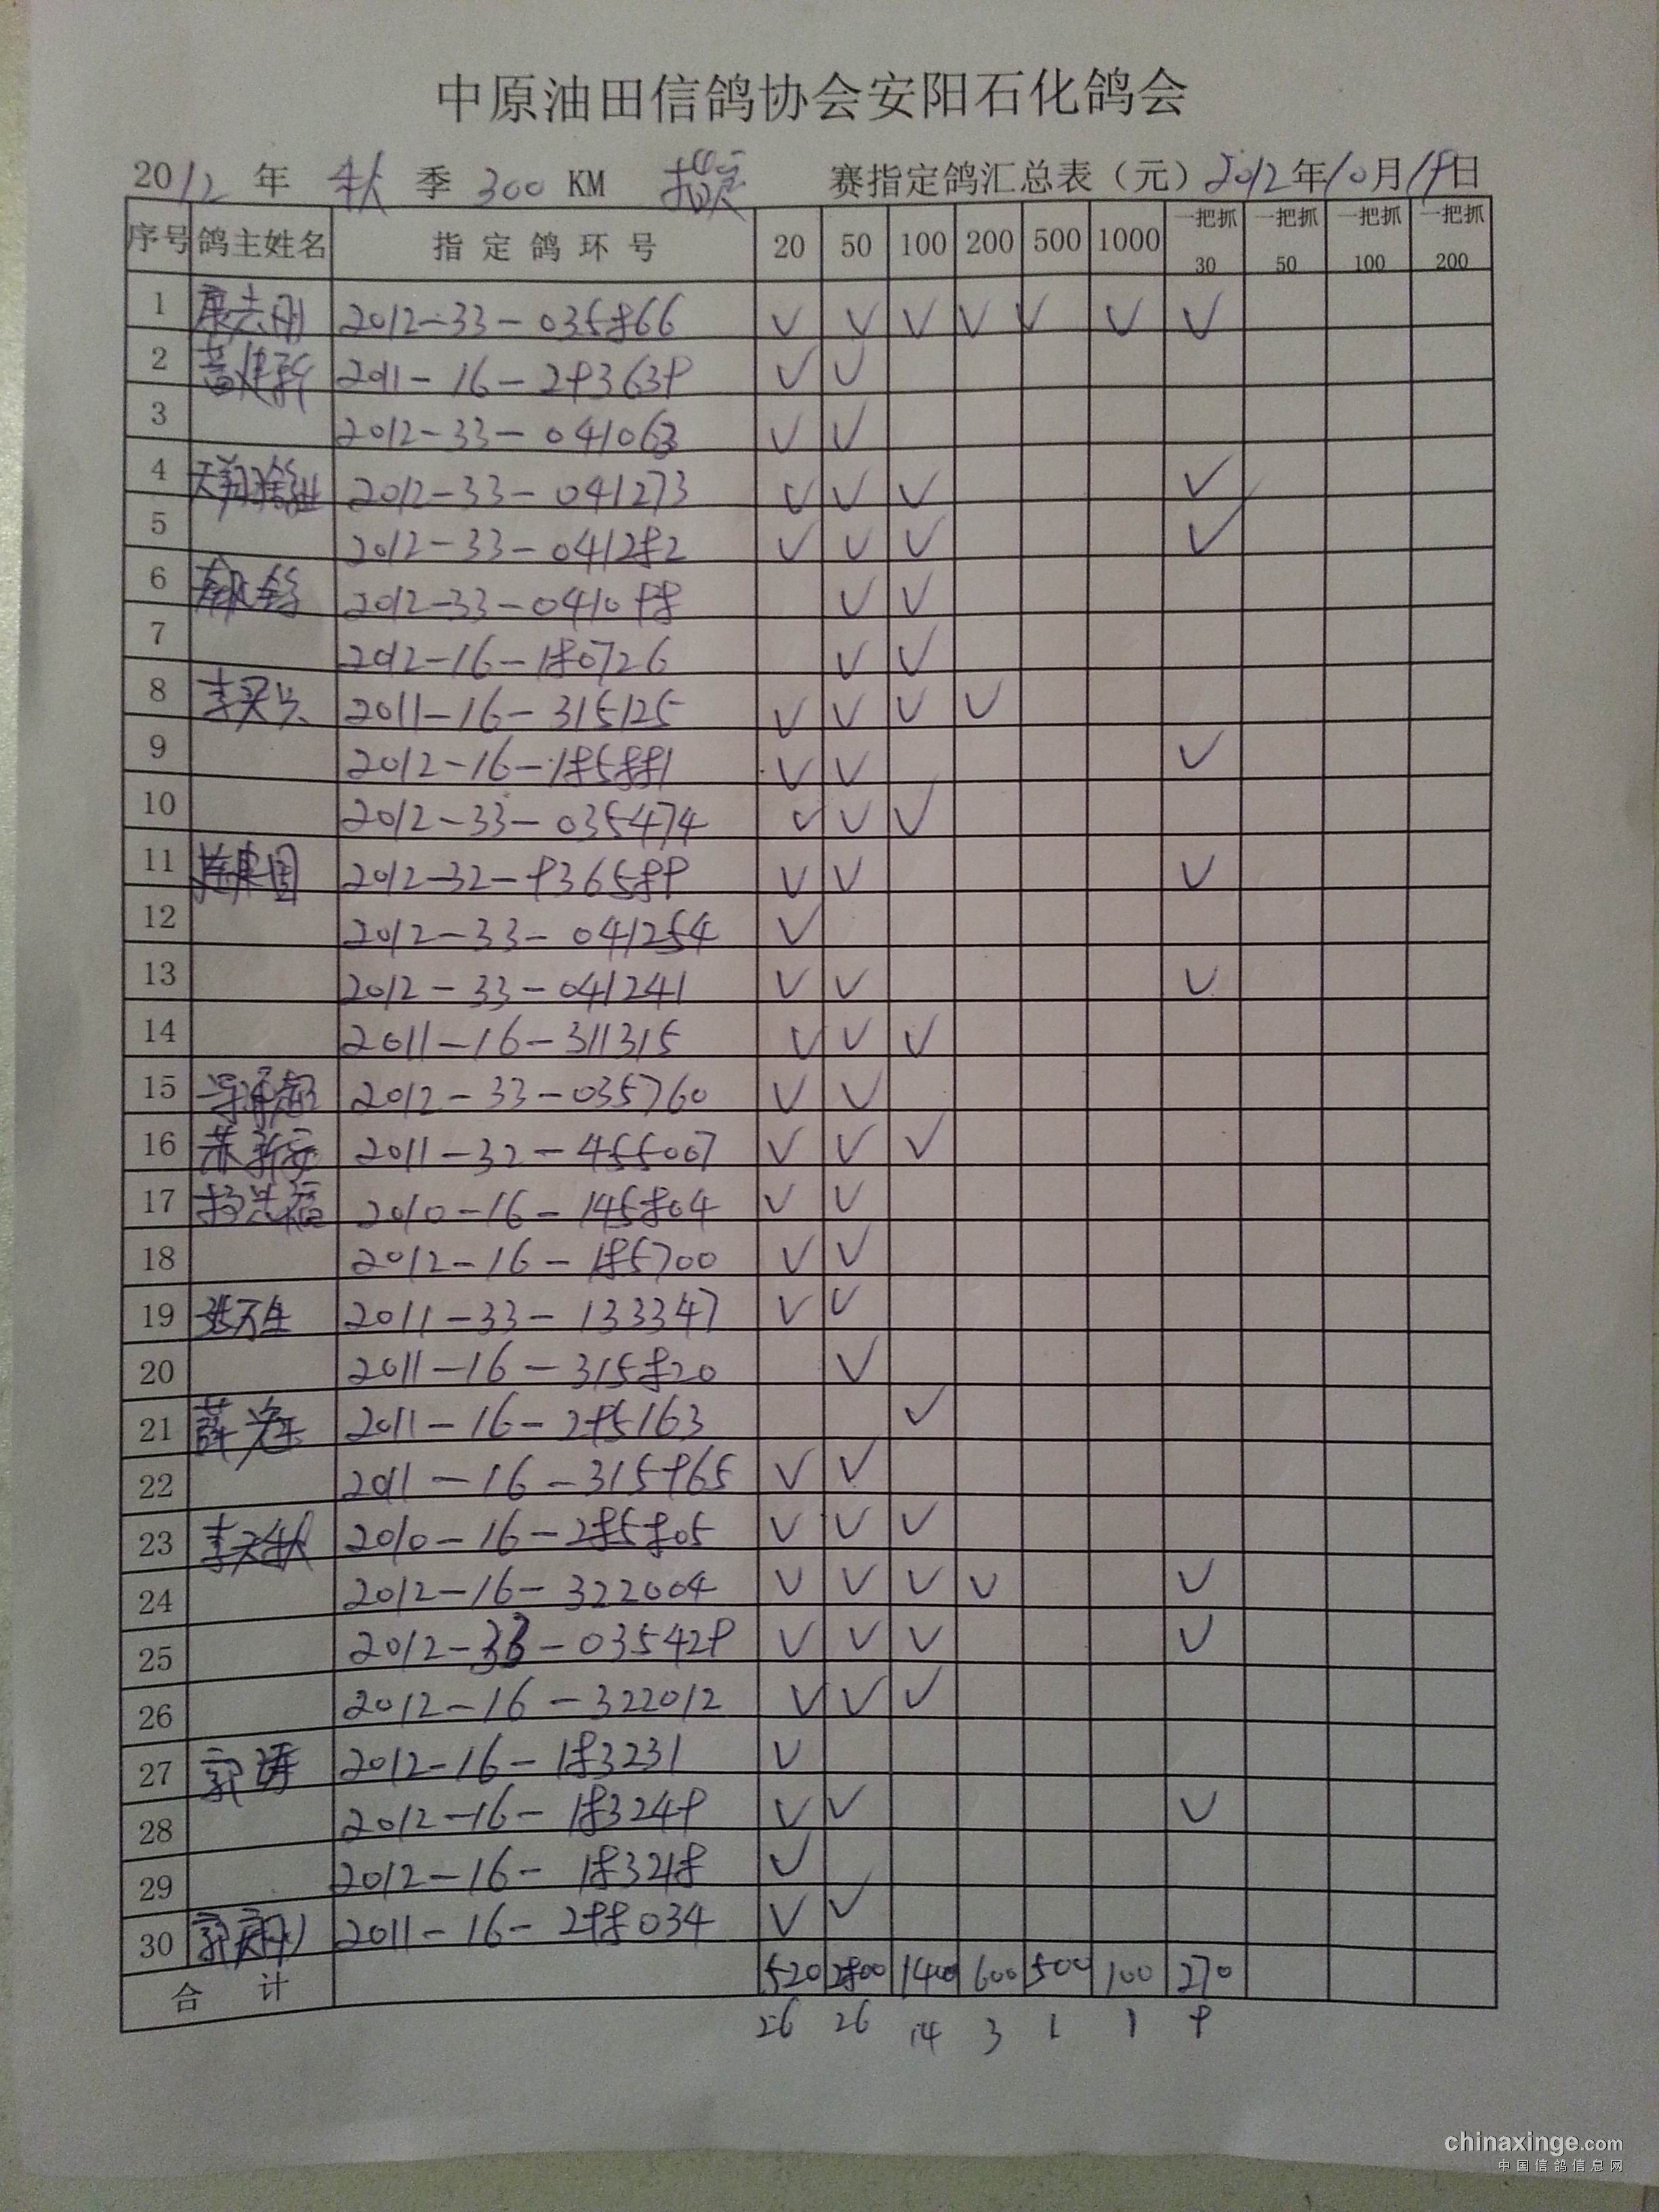 中原油田信鸽协会安阳石化鸽会
2012 年 秋 季 300 KM 赛指定鸽汇总表（元）2012年10月19日
序号 鸽主姓名 指定鸽环号 20 50 100 200 500 1000 一把抓30 一把抓50 一把抓100 一把抓200
1 2012-33-035866 √ √ √ √ √ √ √
2 2011-16-293639 √ √
3 2012-33-041063 √ √
4 天翔鸽业 2012-33-041273 √ √ √ √
5 2012-33-041282 √ √ √ √
6 2012-33-041098 √ √
7 2012-16-180726 √ √
8 2011-16-315125 √ √ √ √
9 2012-16-185881 √ √ √
10 2012-33-035474 √ √ √
11 2012-32-936589 √ √ √
12 2012-33-041254 √
13 2012-33-041241 √ √ √
14 2011-16-311315 √ √ √
15 2012-33-035760 √ √
16 2011-32-455007 √ √ √
17 2010-16-145804 √ √
18 2012-16-185700 √ √
19 张万生 2011-33-133347 √ √
20 2011-16-315820 √
21 2011-16-295163 √
22 2011-16-315965 √ √
23 李天秋 2010-16-285805 √ √ √
24 2012-16-322004 √ √ √ √ √
25 2012-33-035429 √ √ √ √
26 2012-16-322012 √ √ √
27 郭涛 2012-16-183231 √
28 2012-16-183249 √ √ √
29 2012-16-183248 √
30 2011-16-298034 √ √
合计 520 1400 600 500 100 270
26 26 14 3 1 1 9
chinaxinge.com
中国信鸽信息网